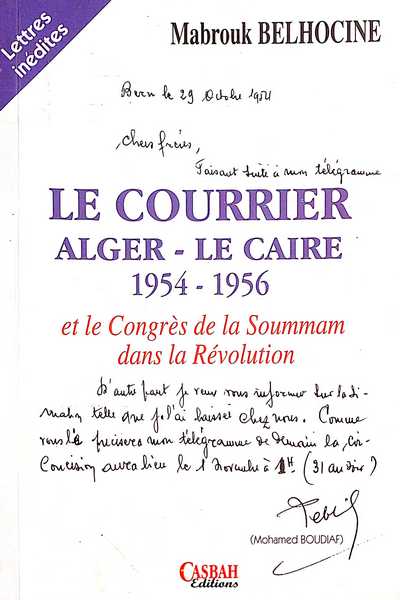 Lettres
inédites
Mabrouk BELHOCINE
Bern le 29 Octobre 1954
chers frères,
Faisant suite à mon télégramme
LE COURRIER
ALGER - LE CAIRE
1954 - 1956
et le Congrès de la Soummam
dans la Révolution
D'autre part je veux vous informer sur la si-
tuation telle que je l'ai laissée chez nous. Comme
vous le précisera mon télégramme de demain la
aura lieu le 1 Novembre à 1H (31 au soir)
(Mohamed BOUDIAF)
CASBAH
Editions